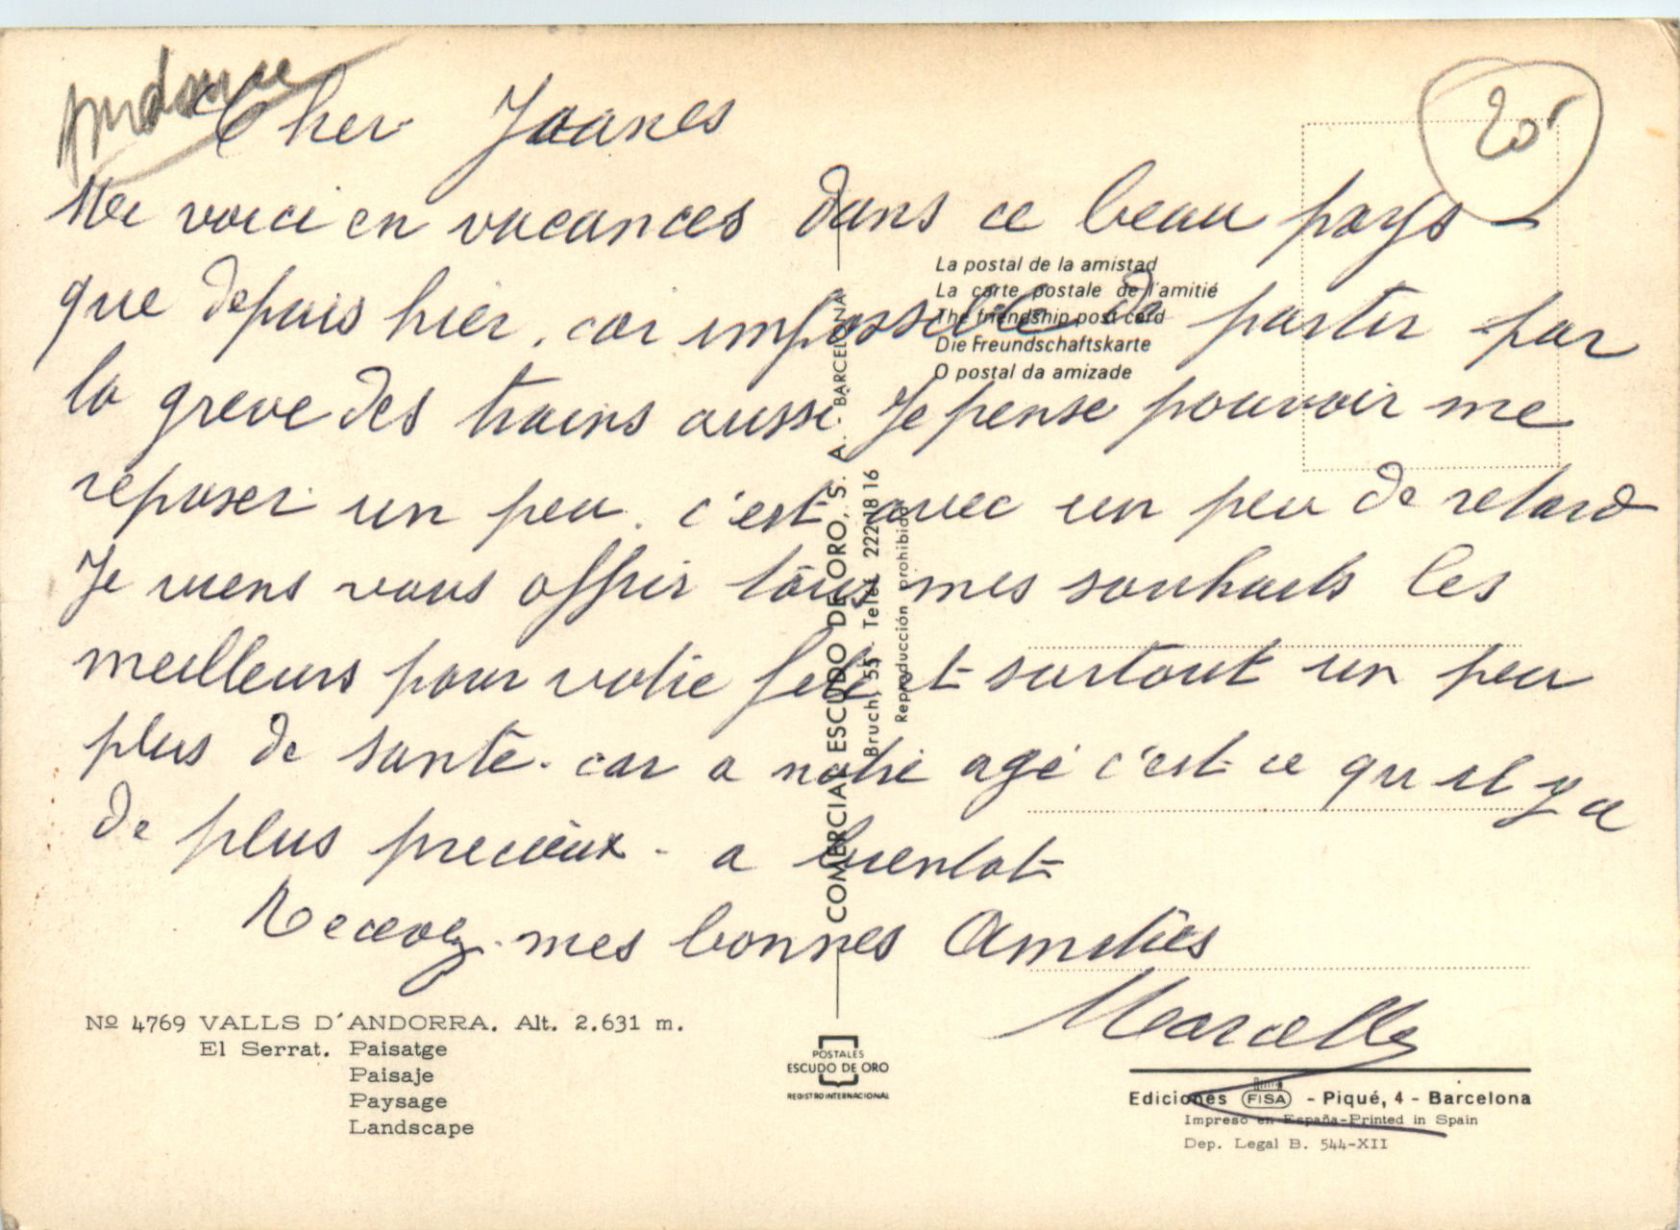 Andorre
20F
Cher Joanes
Me voici en vacances dans ce beau pays
que depuis hier, car impossible de partir par
la greve des trains aussi Je pense pouvoir me
reposer un peu. c'est avec un peu de retard
Je viens vous offrir tous mes souhaits les
meilleurs pour votre fete et surtout un peu
plus de santé. car a notre age c'est ce qu il y a
de plus precieux - a bientot
Recevez mes bonnes Amitiés
Marcelle
La postal de la amistad
La carte postale de l'amitié
The friendship post card
Die Freundschaftskarte
O postal da amizade
COMERCIAL ESCUDO DE ORO, S. A. BARCELONA
Bruch, 55 - Telef. 222 18 16
Reproducción prohibida
Nº 4769 VALLS D'ANDORRA. Alt. 2.631 m.
El Serrat. Paisatge
Paisaje
Paysage
Landscape
POSTALES
ESCUDO DE ORO
REGISTRO INTERNACIONAL
Ediciones FISA - Piqué, 4 - Barcelona
Impreso en España-Printed in Spain
Dep. Legal B. 544-XII